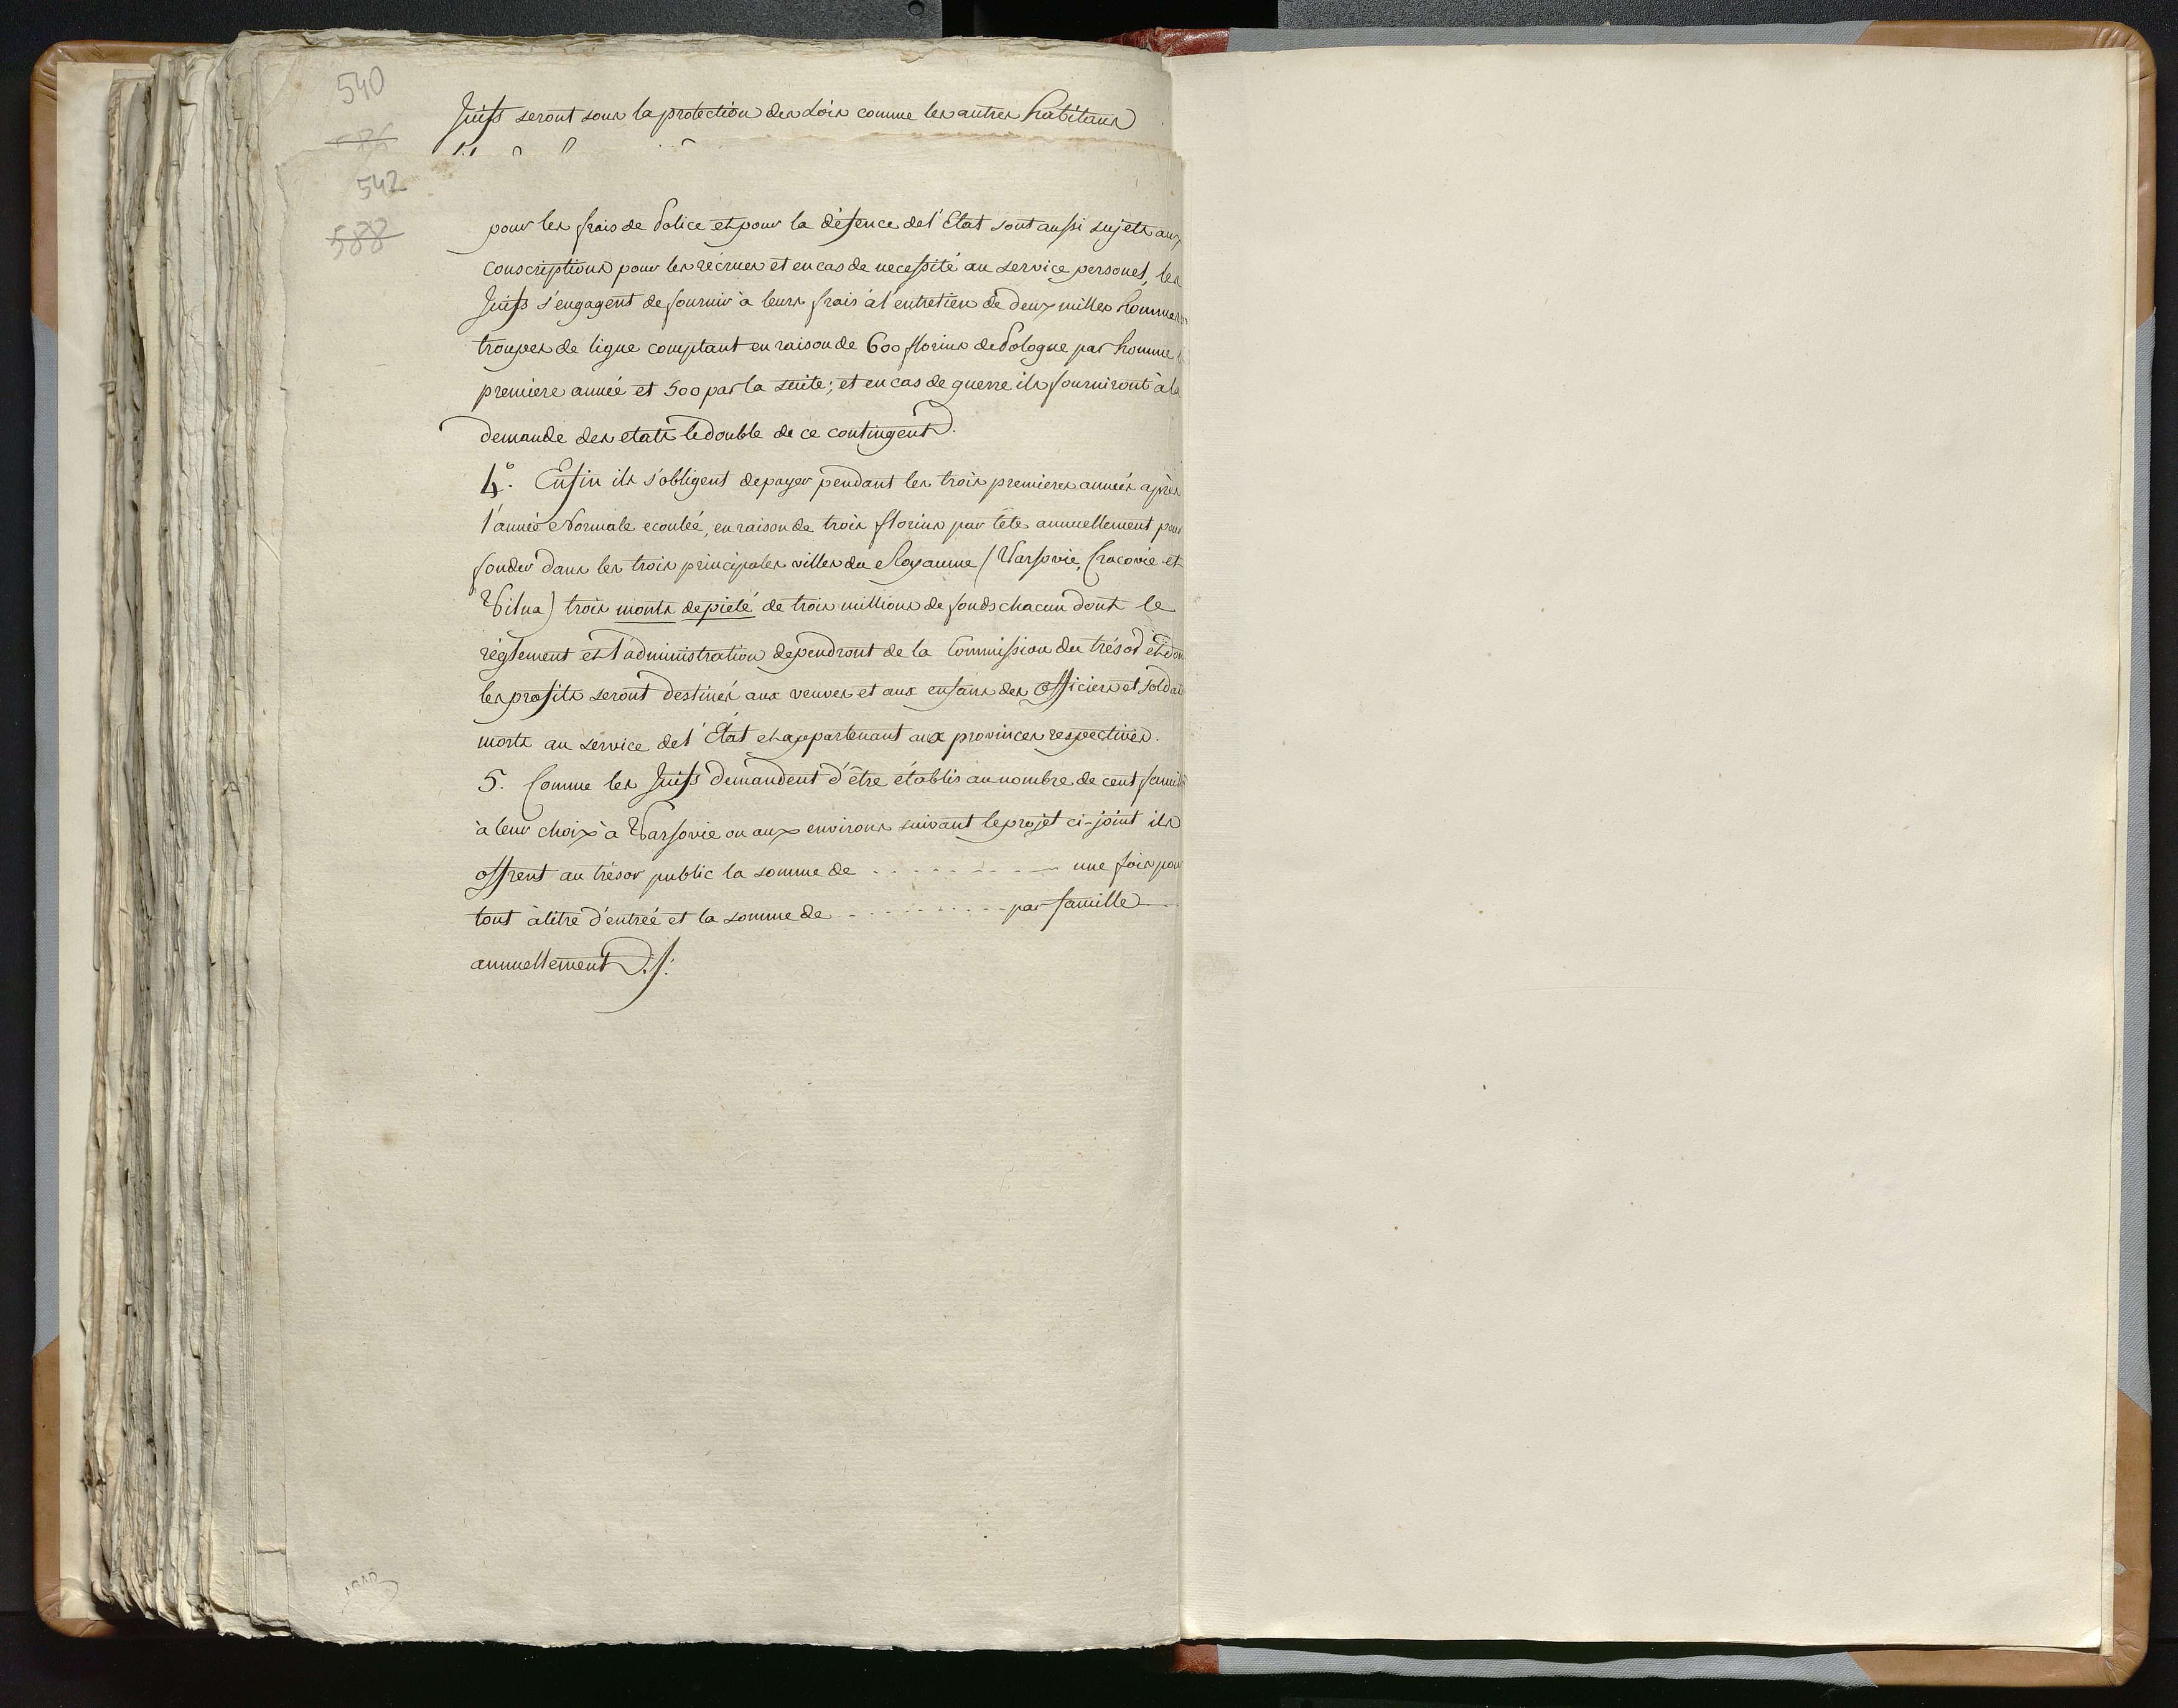 540
Juifs seront sous la protection des Loix comme les autres habitans
542
588
pour les frais de Police et pour la défence de l'Etat sont aussi sujets aux
conscriptions pour les récrues et en cas de necessité au service personel, les
Juifs s'engagent de fournir à leurs frais à l'entretien de deux milles hommes
troupes de ligne comptant en raison de 600 florins de Pologne par homme
premiere année et 500 par la suite; et en cas de guerre ils fourniront à la
demande des etats le double de ce contingent.
4.° Enfin ils s'obligent de payer pendant les trois premieres années après
l'année Normale ecoulée, en raison de trois florins par tête annuellement pour
fonder dans les trois principales villes du Royaume (Warsovie, Cracovie et
Wilna) trois monts de pieté de trois millions de fonds chacun dont le
réglement et l'administration dependront de la Commission du trésor et don
les profits seront destinés aux veuves et aux enfans des Officiers et soldats
morts au service de l'Etat et appartenant aux provinces respectives.
5. Comme les Juifs demandent d'être établis au nombre de cent familles
à leur choix à Warsovie ou aux environs suivant le projet ci-joint ils
offrent au trésor public la somme de . . . . . . . . . . une fois pour
tout à titre d'entrée et la somme de . . . . . . . . . . par famille
annuellement
ARAD